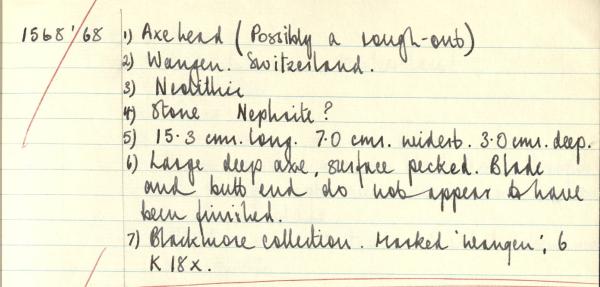 1568'68 1) Axe head (Possibly a rough-out)
2) Wangen. Switzerland.
3) Neolithic
4) Stone Nephrite?
5) 15.3 cms. long. 7.0 cms. widest. 3.0 cms. deep.
6) Large deep axe, surface pecked. Blade
and butt end do not appear to have
been finished.
7) Blackmore collection. Marked 'Wangen'; 6
K 18x.